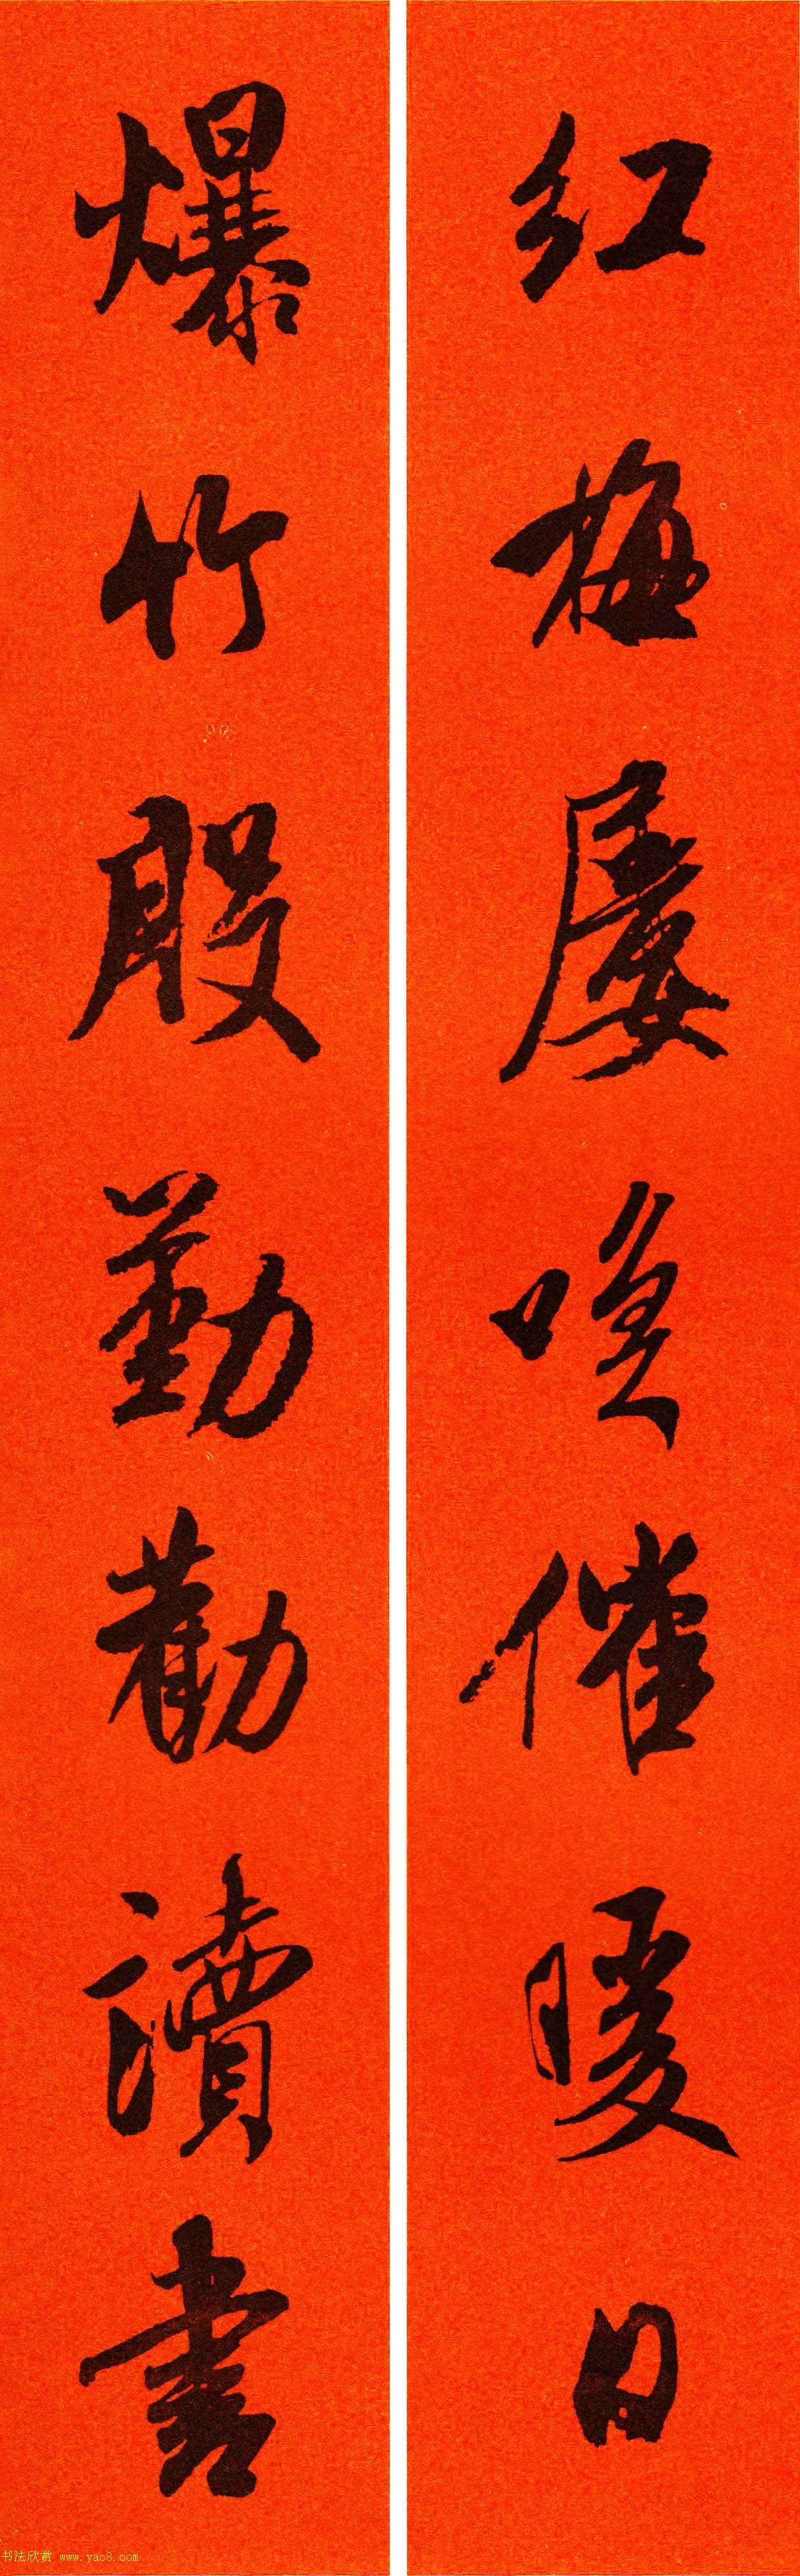 红梅屡唤催暖日
爆竹殷勤勸讀書
书法欣赏 www.yac8.com